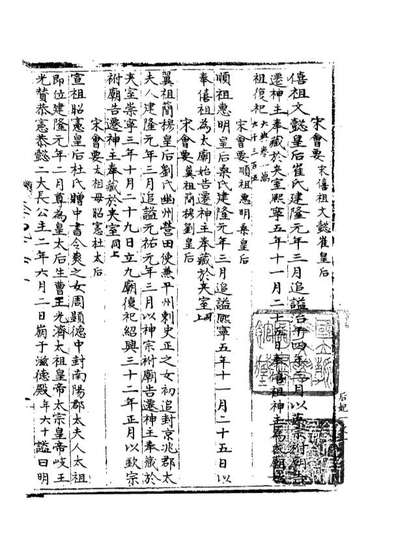 宋會要 宋僖祖文懿崔皇后
僖祖文懿皇后崔氏建隆元年三月追謚治平四年三月以英宗祔廟告
遷神主奉藏於夾室熙寧五年十一月二十五日奉僖祖神主爲
祖復祀
宋會要 順祖惠明桑皇后
順祖惠明皇后桑氏建隆元年三月追謚熙寧五年十一月二十五日以
奉僖祖為太廟始告遷神主奉藏於夾室同上
宋會要 翼祖簡穆劉皇后
翼祖簡穆皇后劉氏幽州營田使兼平州刺史正之女初追封京兆郡太
夫人建隆元年三月追謚元祐元年三月以神宗祔廟告遷神主奉藏於
夾室崇寧三年十月二十九日立九廟復祀紹興三十二年正月以欽宗
祔廟告遷神主奉藏於夾室同上
宋會要 太祖母昭憲杜太后
宣祖昭憲皇后杜氏贈中書令爽之女周顯德中封南陽郡太夫人太祖
即位建隆元年二月尊為皇太后生曹王光濟太祖皇帝太宗皇帝岐王
光贊恭憲恭懿二大長公主二年六月二日崩于滋德殿年六十謚曰明
后妃一